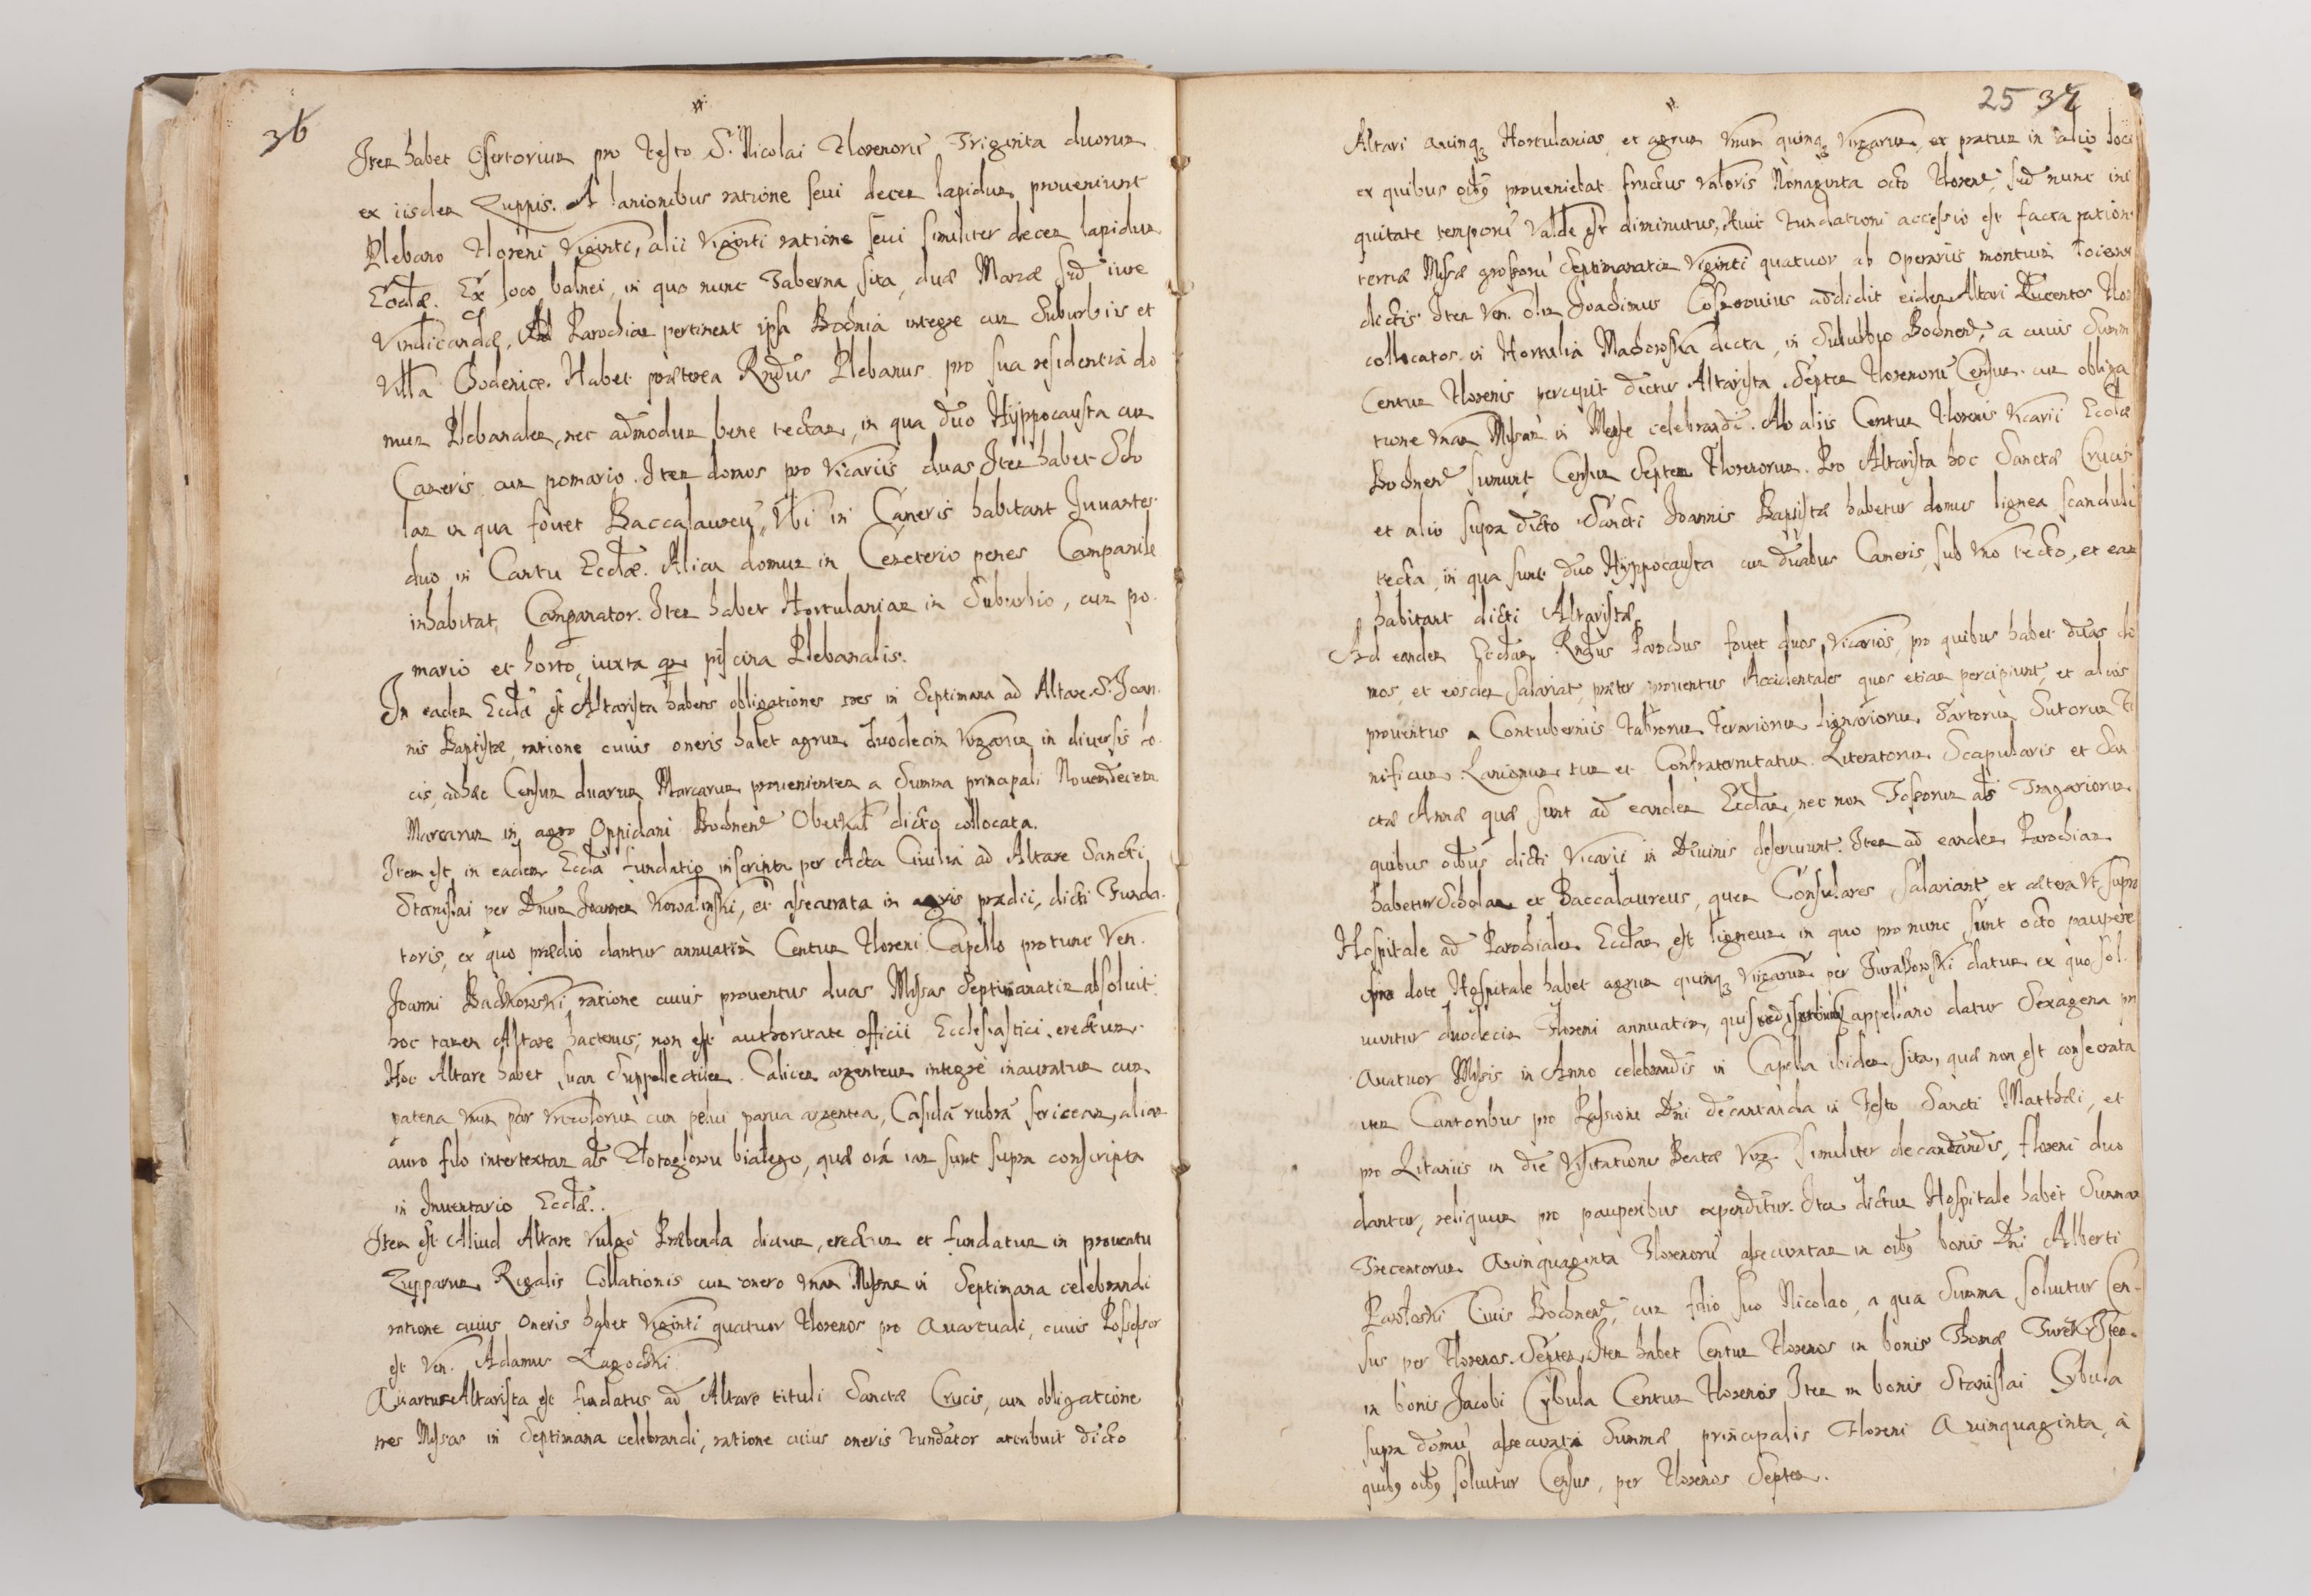 36
Item habet Ofertorium pro Festo S. Nicolai Florenorũ Triginta duorum
ex iisdem Zuppis. A lanionibus ratione seui decem lapidum proueniunt
Plebano Floreni Viginti, alii Viginti ratione seui similiter decem lapidum
Ecclæ. Ex loco balnei, in quo nunc Taberna sita, duæ Marcæ sed iure
Vindicandæ. Ad Parochiam pertinent ipsa Bochnia integre cum Suburbiis et
Villa Chodenice. Habet præterea Rndus Plebanus pro sua residentia do
mum Plebanalem, nec admodum bene tectam, in qua duo Hyppocausta cum
Cameris cum pomario. Item domos pro Vicariis duas Item habet Scho
lam in qua fouet Baccalaureũ, Vbi in Cameris habitant Iuuantes
duo in Cantu Ecclæ. Aliam domum in Cemeterio penes Campanile
inhabitat Campanator. Item habet Hortulaniam in Suburbio, cum po-
mario et horto, iuxta quem piscina Plebanalis.
In eadem Eccla est Altarista habens obligationes tres in Septimana ad Altare S. Joan-
nis Baptistæ, ratione cuius oneris habet agrum duodecim Virgarum in diuersis lo-
cis, adhæc Censum duarum Marcarum prouenientem a Summa principali Nouendecem
Marcarum in agro Oppidani Bochnen̄ dicto collocata.
Item est in eadem Eccla fundatio inscripta per Acta Ciuilia ad Altare Sancti
Stanislai per Dnum Joannem Kowalinski, et assecurata in agris prædii, dicti Funda-
toris, ex quo prædio dantur annuatim Centum Floreni Capello pro tunc Ven.
Joanni Bachowski ratione cuius prouentus duas Missas Septimanatim absoluit
hoc tamen Altare hactenus, non est authoritate officii Ecclesiastici erectum.
Hoc Altare habet suam Suppellectilem. Calicem argenteum integre inauratum cum
patena Vnum par Vrceolorũ cum pelui parua argentea, Casulã rubrã sericeam, aliam
auro filo intertextam als Złotogłowu białego, quæ oĩa iam sunt supra conscripta
in Inuentario Ecclæ.
Item est Aliud Altare Vulgo Præbenda dictum, erectum et fundatum in prouentu
Zupparum Regalis Collationis cum onero Vnam Missam in Septimana celebrandi
ratione cuius Oneris habet Viginti quatuor Florenos pro Quartuali, cuius Possessor
est Ven. Adamus Zagocki
Quartus Altarista est fundatus ad Altare tituli Sanctæ Crucis, cum obligatione
tres Missas in Septimana celebrandi, ratione cuius oneris Fundator attribuit dicto
25 37
Altari Quinqʒ Hortulanias, et agrum Vnum quinqʒ Virgarum, et pratum in alio loco
ex quibus oibʒ proueniebat fructus Valoris Nonaginta octo Floren̄, sed nunc ini
quitate temporũ Valde est diminutus, Huic Fundationi accessio est facta ratione
tertiæ Missæ grossorũ Septimanatim Viginti quatuor ab Operariis montium
dictis. Item Ven. olim Joachimus addidit eidem Altari Ducentos Flor
collocatos in Hortulia dicta, in Suburbio Bochnen̄, a cuius Summ
Centum Florenis percipit dictus Altarista Septem Florenorũ Censum cum obliga
tione Vnam Missam in Mense celebrandi. Ab aliis Centum Florenis Vicarii Ecclæ
Bochnen̄ sumunt Censum Septem Florenorum. Pro Altarista hoc Sanctæ Crucis
et alio supra dicto Sancti Joannis Baptistæ habetur domus lignea scanduli
tecta, in qua sunt duo Hyppocausta cum duabus Cameris, sub Vno tecto, et eam
habitant dicti Altaristæ.
Ad eandem Ecclam Rndus Parochus fouet duos Vicarios, pro quibus habet duas do
mos, et eosdem Salariat, præter prouentus Accidentales quos etiam percipiunt, et alios
prouentus a Contuberniis Fabrorum Ferrariorum Lignariorum Sartorum Sutorum
nificum Lanionum tum et Confraternitatum Literatorum Scapularis et San
ctæ Annæ quæ sunt ad eandem Ecclam, nec non Fossorum als Tragariorum
quibus oibus dicti Vicarii in Diuinis deseruiunt. Item ad eandem Parochiam
habetur Schola et Baccalaureus, quem Consulares Salariant, et cætera Vt supra
Hospitale ad Parochialem Ecclam est ligneum in quo pro nunc sunt octo paupere
pro dote Hospitale habet agrum quinqʒ Virgarum per datum ex quo sol-
uuntur duodecim Floreni annuatim, Cappellano datur Sexagena pro
Quatuor Missis in Anno celebrandis in Capella ibidem sita, quæ non est consecrata
item Cantoribus pro Passione Dni decantanda in Festo Sancti Matthæi, et
pro Litaniis in die Visitationis Beatæ Virg. similiter decantandis, floreni duo
dantur, reliquum pro pauperibus expenditur. Item dictum Hospitale habet Summam
Trecentorum Quinquaginta Florenorũ assecuratam in oibʒ bonis Dni Alberti
Ciuis Bochnen̄, cum filio suo Nicolao, a qua Summa soluitur Cen-
sus per Florenos Septem, Item habet Centum Florenos in bonis Thomæ Turek. Item
in bonis Jacobi Cybula Centum Florenos Item in bonis Stanislai Cybula
supra domũ assecurata Summæ principalis Floreni Quinquaginta, a
quibʒ oibʒ soluitur Census, per Florenos Septem.